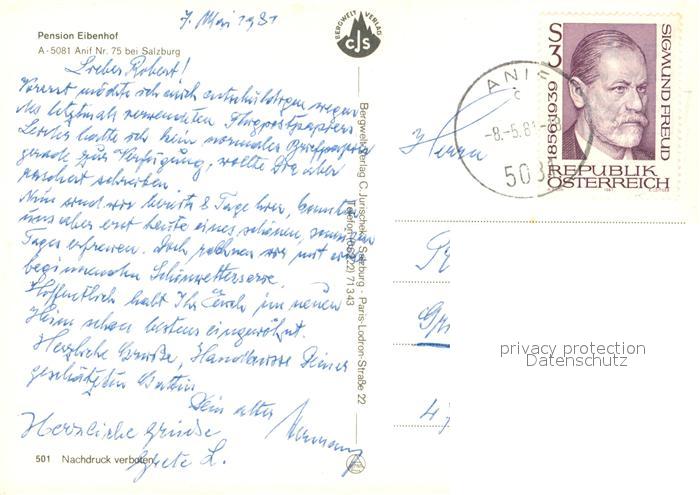 7. Mai 1981
Pension Eibenhof
A-5081 Anif Nr. 75 bei Salzburg
BERGWELT VERLAG
cJs
Lieber Robert!
Vorerst möchte ich mich entschuldigen wegen
des letztmals verwendeten Flugpostpapiers
Leider hatte ich kein normales Briefpapier
gerade zur Verfügung, wollte Dir aber
schreiben.
Nun sind wir bereits 8 Tage hier, konnten
uns aber erst heute eines schönen, sonnigen
Tages erfreuen. Doch rechnen wir mit einer
beginnenden Schönwetterserie.
Hoffentlich habt Ihr Euch im neuen
Heim schon bestens eingewöhnt.
Herzliche Grüsse, Handküsse Deiner
geschätzten Gattin
Dein alter
Hermann
Herzliche Grüsse
Grete L.
501 Nachdruck verboten
Bergweltverlag C. Jurischek, Salzburg - Paris-Lodron-Straße 22
Telefon (06222) 71343
S 3
1856-1939
SIGMUND FREUD
REPUBLIK
ÖSTERREICH
ANIF
-8.-5.81
508
Herrn
privacy protection
Datenschutz